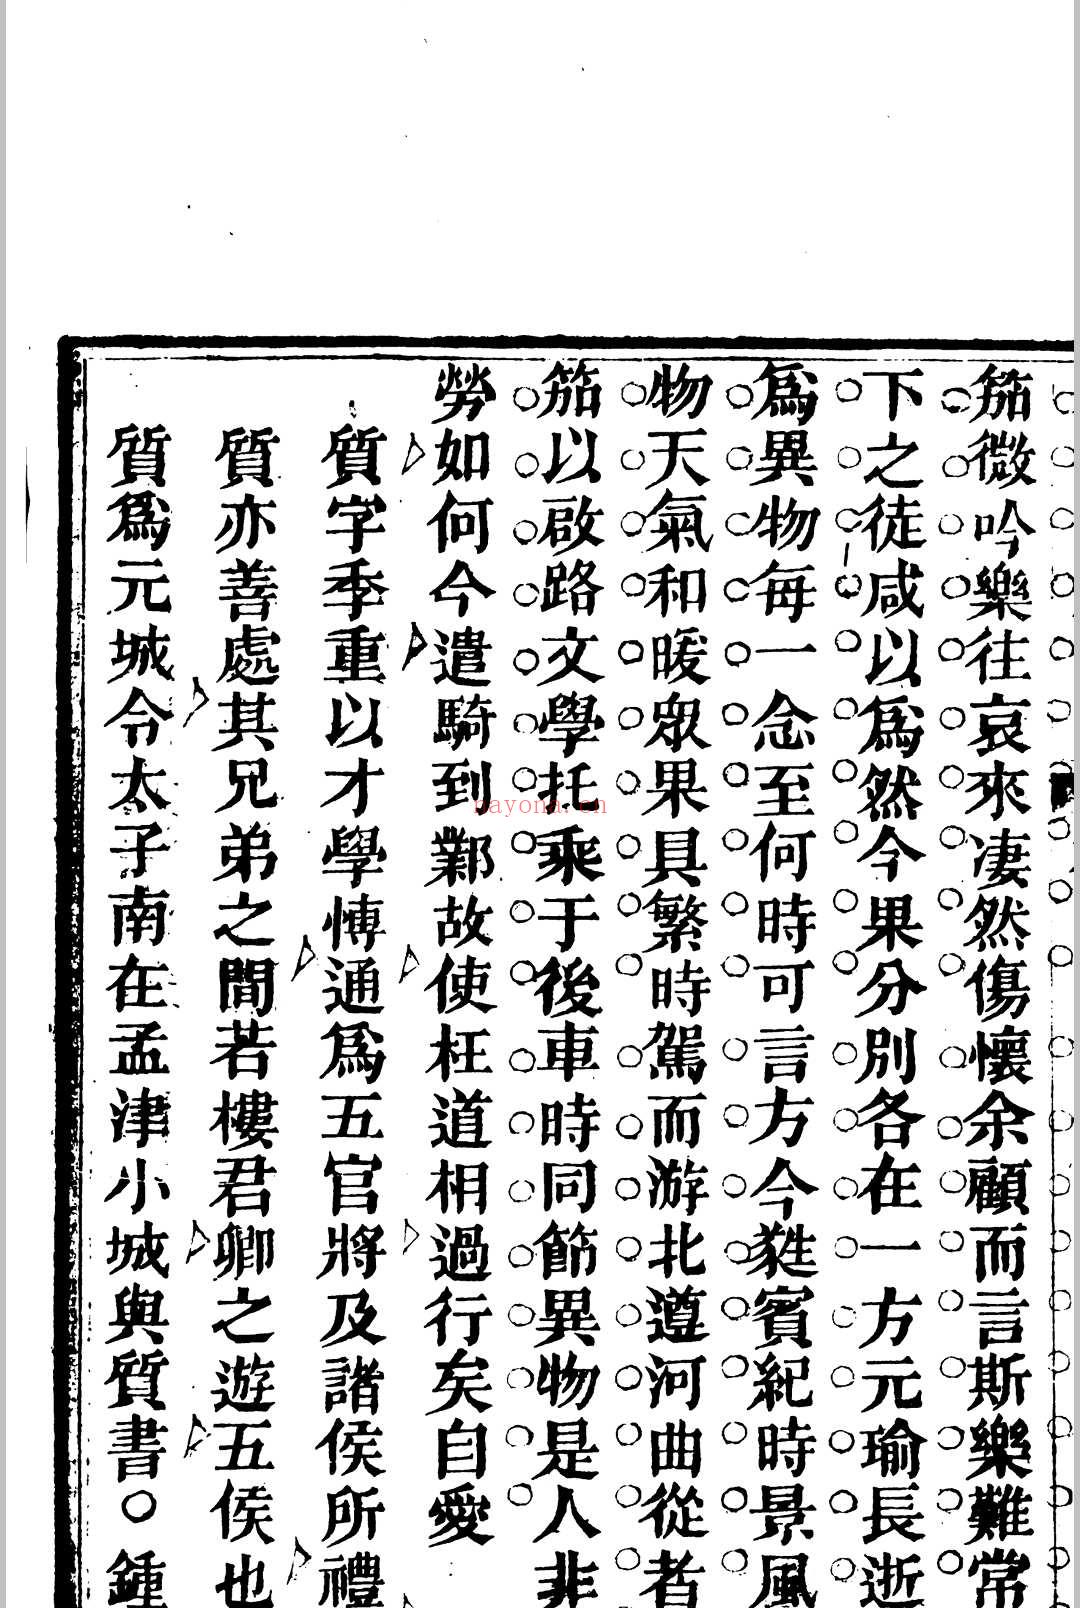 笳微吟樂往哀來凄然傷懷余顧而言斯樂難常
下之徒咸以爲然今果分別各在一方元瑜長逝
爲異物每一念至何時可言方今蕤賓紀時景風
物天氣和暖衆果具繁時駕而游北遵河曲從者
笳以啟路文學托乘于後車時同節異物是人非
勞如何今遣騎到鄴故使枉道相過行矣自愛
質字季重以才學愽通爲五官將及諸侯所禮
質亦善處其兄弟之間若樓君卿之遊五侯也
質爲元城令太子南在孟津小城與質書○鍾
nayona.cn